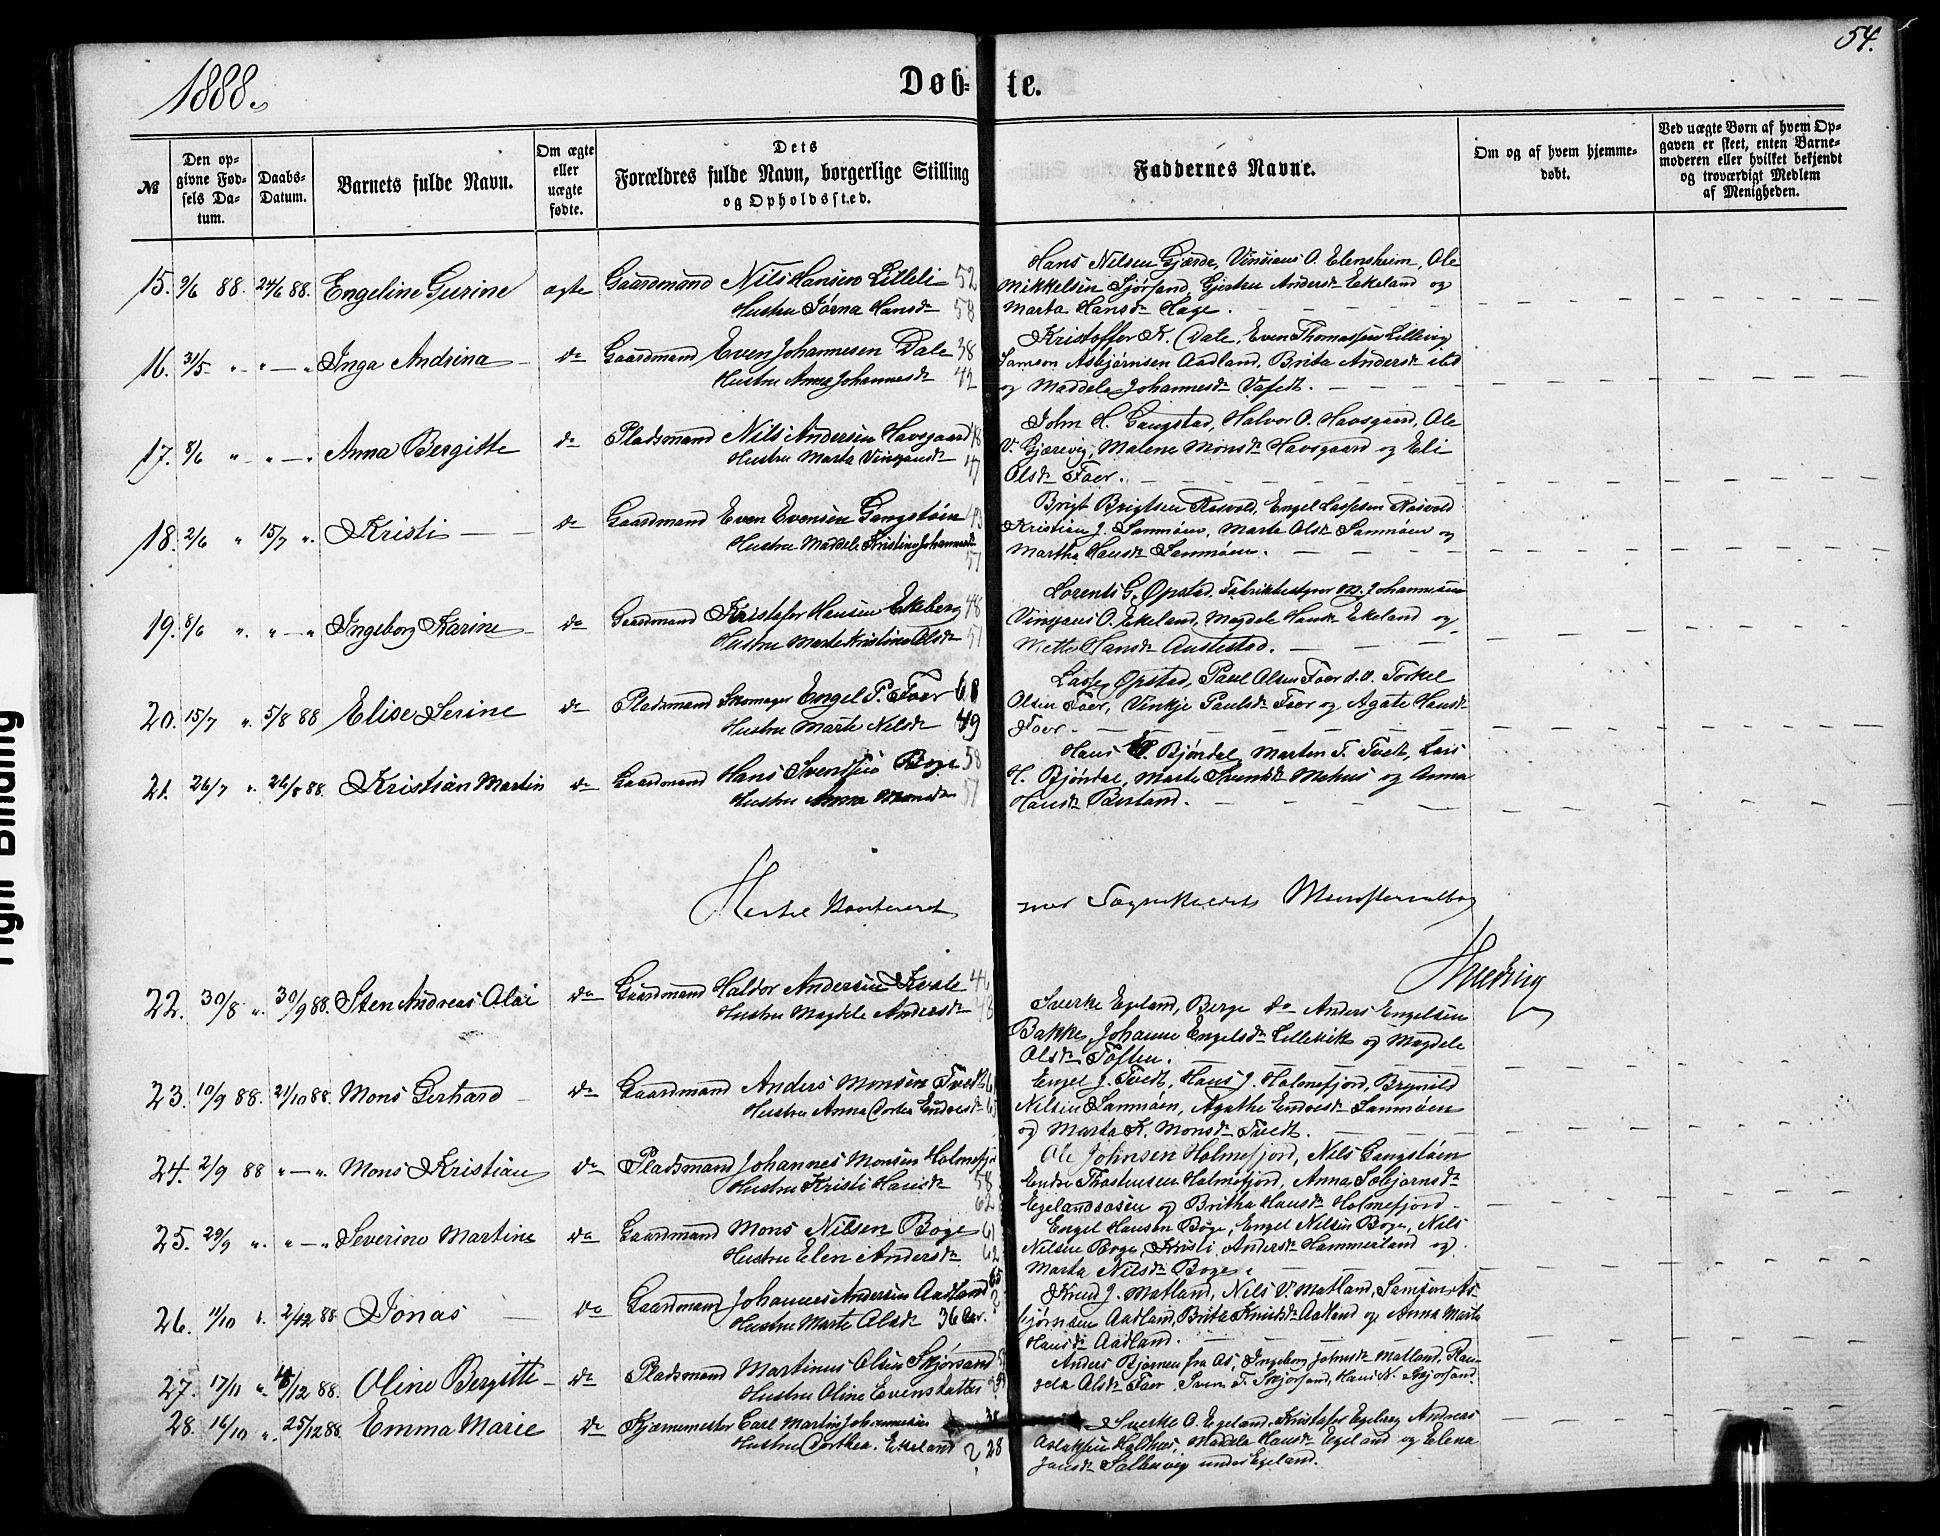 54.
1888.
Døb- te.
№
Den op-
givne Fød-
sels Da-
tum.
Daabs-
Datum.
Barnets fulde Navn.
Om ægte
eller
uægte
fødte.
Dets
Forældres fulde Navn, borgerlige Stilling
og Opholdssted.
Faddernes Navne.
Om og af hvem hjemme-
døbt.
Ved uægte Børn af hvem Op-
gaven er skeet, enten Barne-
moderen eller hvilket bekjendt
og troværdigt Medlem
af Menigheden.
15. 9/6 88. 24/6 88. Engeline Gurine ægte Gaardmand Nils Hansen Lilleli 52
Hustru Jørna Hansdr 58
Hans Nilsen Gjærde, O. Elensheim, Ole
Mikkelsen Sjørsand, Gjertru Andersdr Ekeland og
Marta Hansdr Hage.
16. 31/5 " " — " Inga Andrina — do Gaardmand Even Johannesen Dale 38
Hustru Anna Johannesdr 42
Kristoffer K. Dale, Even Thomassen Lillevig
Samson Asbjørnsen Aadland, Brita Andersdr ibd
og Maddele Johannesdr Vafedt.
17. 8/6 " " — " Anna Bergitte do Pladsmand Nils Andersen Havsgaard 48
Hustru Marta Vinjansdr 47
John H. Gangstad, Halvor O. Havsgaard, Ole
V. Gjærevig, Malene Monsdr Havsgaard og Eli
Olsdr Foer.
18. 2/6 " 15/7 " Kristi — do Gaardmand Even Evensen Gangstøin 43
Hustru Maddele Kristine Johannesdr
57
Brigt Brigtsen Rosvold, Engel Lassesen Rosvold
Kristian J. Samnøen, Marte Olsdr Samnøen og
Martha Hansdr Samnøen.
19. 8/6 " " — " Ingeborg Karine do Gaardmand Kristofer Hansen Ekeberg 48
Hustru Marte Kristine Olsdr 51
Lorents G. Opstad, Fabrikbestyrer M. Johannesen
Vinjans O. Ekeland, Magdele Hansdr Ekeland og
Mette Hansdr Austestad.
20. 15/7 " 5/8 88 Elise Serine do Pladsmand Skomager Engel P. Foer 68
Hustru Marte Nilsdr 49
Lasse Opstad, Paul Olsen Foer d.v. Torkel
Olsen Foer, Vinkje Paulsdr Foer og Agate Hansdr
Foer.
21. 26/7 " 26/8 88. Kristian Martin do Gaardmand Hans Svendsen Boge 58
Hustru Anna Monsdr 57
Hans P. Bjøndal, Marten T. Tvedt, Lars
H. Bjøndal, Marte Svendsdr Mehus og Anna
Hansdr
Hertil konfereret med Sognekaldets Ministerialbog
22. 30/8 " 30/9 88. Sten Andreas Olai do Gaardmand Haldor Andersen Kvale 46
Hustru Magdele Andersdr 48
Sverke Egeland, Berge do Anders Engelsen
Bakke, Johanne Engelsdr Lillevik og Magdele
Olsdr Toften.
23. 10/9 88. 21/10 88. Mons Gerhard — do Gaardmand Anders Monsen Tvedt 6
Hustru Anna Dortea Endresdr 6
Engel J. Tvedt, Hans J. Holmefjord, Brynild
Nilsen Samnøen, Agathe Endresdr Samnøen
og Marta K. Monsdr Tvedt.
24. 2/9 88 " — " Mons Kristian do Pladsmand Johannes Monsen Holmefj
Hustru Kristi Hansdr 58
62
Ole Johnsen Holmefjord, Nils Gangstøen
Endre Thorstensen Holmefjord, Anna Sæbjørnsdr
Egelandsosen og Britha Hansdr Holmefjord.
25. 29/9 " " — " Severine Martine do Gaardmand Mons Nilsen Boge 61
Hustru Elen Andersdr 62
Engel Hansen Boge, Engel Nilsen Boge, Nils
Nilsen Boge, Kristi Andersdr Hammerland og
Marta Nilsdr Boge.
26. 11/10 " 2/12 88 Jonas — do Gaardmand Johannes Andersen Aadland 65
Hustru Marte Olsdr 36 Aar. ?
Knud J. Matland, Nils V. Matland, Samson As-
bjørnsen Aadland, Brita Knudsdr Aadland og Anna Marta
Hansdr Aadland.
27. 17/11 " /12 88. Oline Bergitte — do Pladsmand Martinus Olsen Skjørsand
Hustru Oline Evensdatter
Anders Bjørnen fra Os, Ingeborg Johnsdr Matland, Ran-
Olsdr Foer, Sven T. Skjørsand, Hans N. Skjørsand.
28. 16/10 " 25/12 88. Emma Marie do Kjærnemester Carl Martin Johannesen 31
Hustru Dorthea. Ekeland ? 28
Sverke O. Egeland, Kristofer Egeberg, Andreas
Aslaksen Holdhus, Maddela Hansdr Egeland og Elena
Jansdr Solbervig under Egeland.